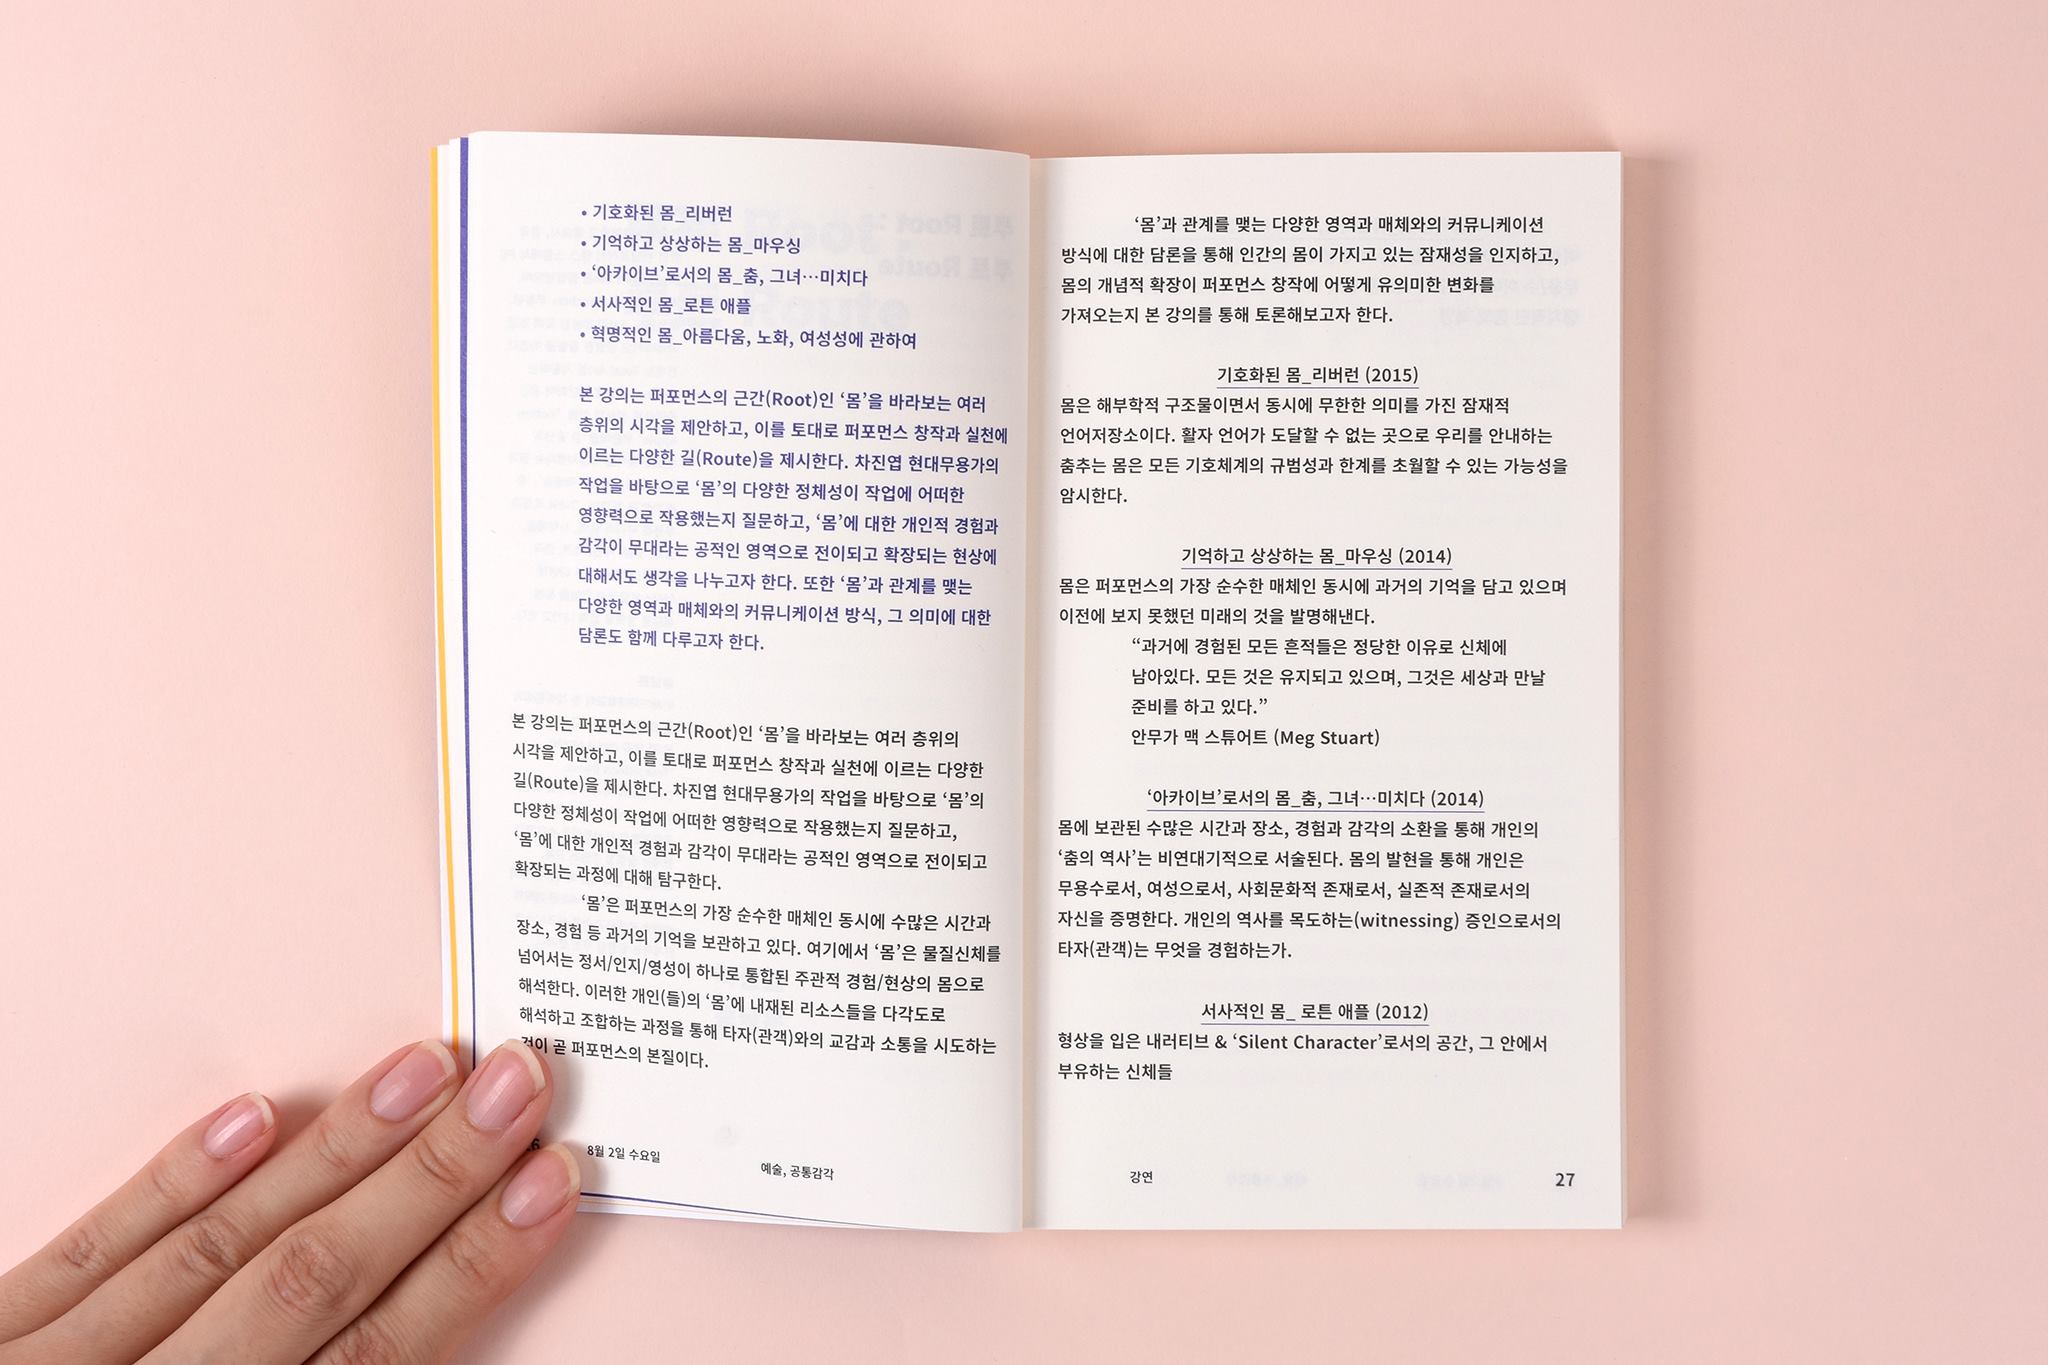 • 기호화된 몸_리버런
• 기억하고 상상하는 몸_마우싱
• ‘아카이브’로서의 몸_춤, 그녀…미치다
• 서사적인 몸_로튼 애플
• 혁명적인 몸_아름다움, 노화, 여성성에 관하여
본 강의는 퍼포먼스의 근간(Root)인 ‘몸’을 바라보는 여러
층위의 시각을 제안하고, 이를 토대로 퍼포먼스 창작과 실천에
이르는 다양한 길(Route)을 제시한다. 차진엽 현대무용가의
작업을 바탕으로 ‘몸’의 다양한 정체성이 작업에 어떠한
영향력으로 작용했는지 질문하고, ‘몸’에 대한 개인적 경험과
감각이 무대라는 공적인 영역으로 전이되고 확장되는 현상에
대해서도 생각을 나누고자 한다. 또한 ‘몸’과 관계를 맺는
다양한 영역과 매체와의 커뮤니케이션 방식, 그 의미에 대한
담론도 함께 다루고자 한다.
본 강의는 퍼포먼스의 근간(Root)인 ‘몸’을 바라보는 여러 층위의
시각을 제안하고, 이를 토대로 퍼포먼스 창작과 실천에 이르는 다양한
길(Route)을 제시한다. 차진엽 현대무용가의 작업을 바탕으로 ‘몸’의
다양한 정체성이 작업에 어떠한 영향력으로 작용했는지 질문하고,
‘몸’에 대한 개인적 경험과 감각이 무대라는 공적인 영역으로 전이되고
확장되는 과정에 대해 탐구한다.
‘몸’은 퍼포먼스의 가장 순수한 매체인 동시에 수많은 시간과
장소, 경험 등 과거의 기억을 보관하고 있다. 여기에서 ‘몸’은 물질신체를
넘어서는 정서/인지/영성이 하나로 통합된 주관적 경험/현상의 몸으로
해석한다. 이러한 개인(들)의 ‘몸’에 내재된 리소스들을 다각도로
해석하고 조합하는 과정을 통해 타자(관객)와의 교감과 소통을 시도하는
것이 곧 퍼포먼스의 본질이다.
8월 2일 수요일
예술, 공통감각
‘몸’과 관계를 맺는 다양한 영역과 매체와의 커뮤니케이션
방식에 대한 담론을 통해 인간의 몸이 가지고 있는 잠재성을 인지하고,
몸의 개념적 확장이 퍼포먼스 창작에 어떻게 유의미한 변화를
가져오는지 본 강의를 통해 토론해보고자 한다.
기호화된 몸_리버런 (2015)
몸은 해부학적 구조물이면서 동시에 무한한 의미를 가진 잠재적
언어저장소이다. 활자 언어가 도달할 수 없는 곳으로 우리를 안내하는
춤추는 몸은 모든 기호체계의 규범성과 한계를 초월할 수 있는 가능성을
암시한다.
기억하고 상상하는 몸_마우싱 (2014)
몸은 퍼포먼스의 가장 순수한 매체인 동시에 과거의 기억을 담고 있으며
이전에 보지 못했던 미래의 것을 발명해낸다.
“과거에 경험된 모든 흔적들은 정당한 이유로 신체에
남아있다. 모든 것은 유지되고 있으며, 그것은 세상과 만날
준비를 하고 있다.”
안무가 맥 스튜어트 (Meg Stuart)
‘아카이브’로서의 몸_춤, 그녀…미치다 (2014)
몸에 보관된 수많은 시간과 장소, 경험과 감각의 소환을 통해 개인의
‘춤의 역사’는 비연대기적으로 서술된다. 몸의 발현을 통해 개인은
무용수로서, 여성으로서, 사회문화적 존재로서, 실존적 존재로서의
자신을 증명한다. 개인의 역사를 목도하는(witnessing) 증인으로서의
타자(관객)는 무엇을 경험하는가.
서사적인 몸_ 로튼 애플 (2012)
형상을 입은 내러티브 & ‘Silent Character’로서의 공간, 그 안에서
부유하는 신체들
강연
27